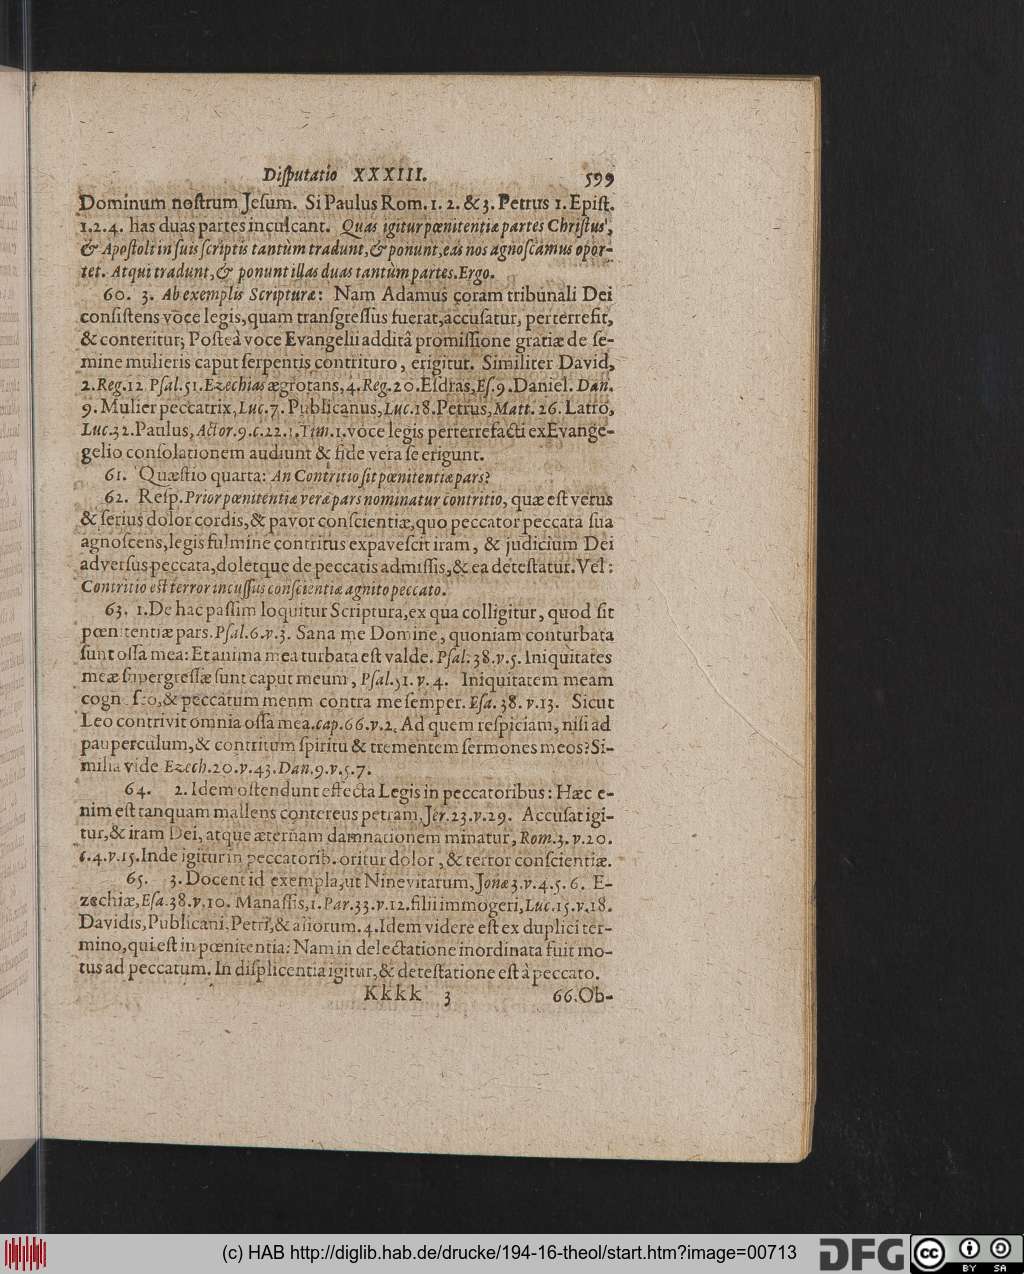 Disputatio XXXIII. 599
Dominum nostrum Jesum. Si Paulus Rom. 1. 2. & 3. Petrus 1. Epist.
1.2.4. has duas partes inculcant. Quas igitur pœnitentiæ partes Christus,
& Apostoli in suis scriptis tantùm tradunt, & ponunt, eas nos agnoscamus opor-
tet. Atqui tradunt, & ponunt illas duas tantùm partes. Ergo.
60. 3. Ab exemplis Scripturæ: Nam Adamus coram tribunali Dei
consistens voce legis, quam transgressus fuerat, accusatur, perterrefit,
& conteritur; Posteà voce Evangelii additâ promissione gratiæ de se-
mine mulieris caput serpentis contrituro, erigitur. Similiter David,
2. Reg. 12 Psal. 51. Ezechias ægrotans, 4. Reg. 20. Esdras, Es. 9. Daniel. Dan.
9. Mulier peccatrix, Luc. 7. Publicanus, Luc. 18. Petrus, Matt. 26. Latro,
Luc. 32. Paulus, Actor. 9. c. 22. 1. Tim. 1. voce legis perterrefacti ex Evange-
gelio consolationem audiunt & fide vera se erigunt.
61. Quæstio quarta: An Contritio sit pœnitentiæ pars?
62. Resp. Prior pœnitentiæ veræ pars nominatur contritio, quæ est verus
& serius dolor cordis, & pavor conscientiæ, quo peccator peccata sua
agnoscens, legis fulmine contritus expavescit iram, & judicium Dei
adversus peccata, doletque de peccatis admissis, & ea detestatur. Vel:
Contritio est terror incussus conscientiæ agnito peccato.
63. 1. De hac passim loquitur Scriptura, ex qua colligitur, quod sit
pœnitentiæ pars. Psal. 6. v. 3. Sana me Domine, quoniam conturbata
sunt ossa mea: Et anima mea turbata est valde. Psal. 38. v. 5. Iniquitates
meæ supergressæ sunt caput meum, Psal. 51. v. 4. Iniquitatem meam
cogn sco, & peccatum menm contra me semper. Esa. 38. v. 13. Sicut
Leo contrivit omnia ossa mea. cap. 66. v. 2. Ad quem respiciam, nisi ad
pauperculum, & contritum spiritu & trementem sermones meos? Si-
milia vide Ezech. 20. v. 43. Dan. 9. v. 5. 7.
64. 2. Idem ostendunt effecta Legis in peccatoribus: Hæc e-
nim est tanquam malleus contereus petram, Jer. 23. v. 29. Accusat igi-
tur, & iram Dei, atque æternam damnationem minatur, Rom. 3. v. 20.
c. 4. v. 15. Inde igitur in peccatorib. oritur dolor, & terror conscientiæ.
65. 3. Docent id exempla, ut Ninevitarum, Jonæ 3. v. 4. 5. 6. E-
zechiæ, Esa. 38. v. 10. Manassis, 1. Par. 33. v. 12. filii immogeri, Luc. 15. v. 18.
Davidis, Publicani, Petri, & aliorum. 4. Idem videre est ex duplici ter-
mino, qui est in pœnitentia: Nam in delectatione inordinata fuit mo-
tus ad peccatum. In displicentia igitur, & detestatione est à peccato.
Kkkk 3 66. Ob-
(c) HAB http://diglib.hab.de/drucke/194-16-theol/start.htm?image=00713
DFG
cc
BY SA